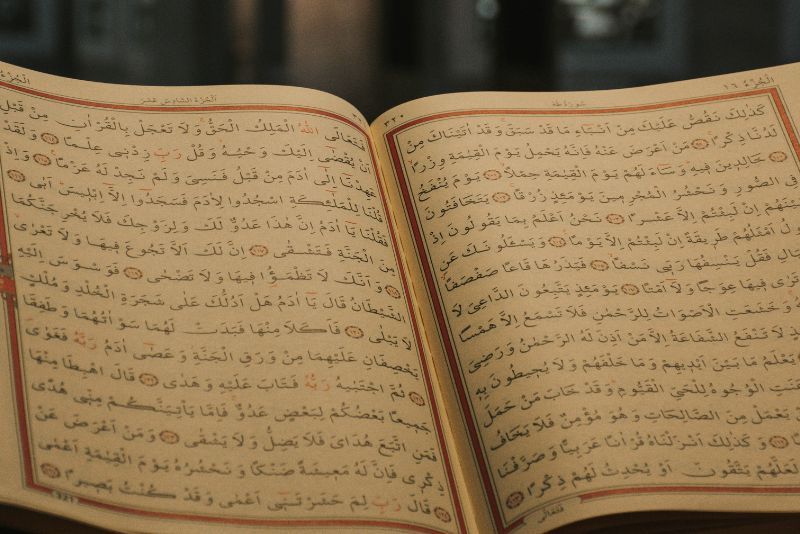 الْجُزْءُ ١٦
سُورَةُ طٰهٰ
كَذٰلِكَ نَقُصُّ عَلَيْكَ مِنْ اَنْبَاءِ مَا قَدْ سَبَقَ وَقَدْ اٰتَيْنَاكَ مِنْ
لَدُنَّا ذِكْرًا مَنْ اَعْرَضَ عَنْهُ فَاِنَّهُ يَحْمِلُ يَوْمَ الْقِيٰمَةِ وِزْرًا
خَالِدِينَ فِيهِ وَسَاءَ لَهُمْ يَوْمَ الْقِيٰمَةِ حِمْلًا يَوْمَ يُنْفَخُ
فِي الصُّورِ وَنَحْشُرُ الْمُجْرِمِينَ يَوْمَئِذٍ زُرْقًا يَتَخَافَتُونَ
بَيْنَهُمْ اِنْ لَبِثْتُمْ اِلَّا عَشْرًا نَحْنُ اَعْلَمُ بِمَا يَقُولُونَ اِذْ
اَمْثَلُهُمْ طَرِيقَةً اِنْ لَبِثْتُمْ اِلَّا يَوْمًا وَيَسْـَٔلُونَكَ عَنِ
فَقُلْ يَنْسِفُهَا رَبِّي نَسْفًا فَيَذَرُهَا قَاعًا صَفْصَفًا
تَرٰى فِيهَا عِوَجًا وَلَا اَمْتًا يَوْمَئِذٍ يَتَّبِعُونَ الدَّاعِيَ لَا
وَخَشَعَتِ الْاَصْوَاتُ لِلرَّحْمٰنِ فَلَا تَسْمَعُ اِلَّا هَمْسًا
لَا تَنْفَعُ الشَّفَاعَةُ اِلَّا مَنْ اَذِنَ لَهُ الرَّحْمٰنُ وَرَضِيَ
يَعْلَمُ مَا بَيْنَ اَيْدِيهِمْ وَمَا خَلْفَهُمْ وَلَا يُحِيطُونَ بِهِ
وَعَنَتِ الْوُجُوهُ لِلْحَيِّ الْقَيُّومِ وَقَدْ خَابَ مَنْ حَمَلَ
يَعْمَلْ مِنَ الصَّالِحَاتِ وَهُوَ مُؤْمِنٌ فَلَا يَخَافُ
وَكَذٰلِكَ اَنْزَلْنَاهُ قُرْاٰنًا عَرَبِيًّا وَصَرَّفْنَا
لَعَلَّهُمْ يَتَّقُونَ اَوْ يُحْدِثُ لَهُمْ ذِكْرًا
فَتَعَالَى
الْجُزْءُ السَّادِسَ عَشَرَ
فَتَعَالَى اللّٰهُ الْمَلِكُ الْحَقُّ وَلَا تَعْجَلْ بِالْقُرْاٰنِ مِنْ قَبْلِ
اَنْ يُقْضٰى اِلَيْكَ وَحْيُهُ وَقُلْ رَبِّ زِدْنِي عِلْمًا وَلَقَدْ
عَهِدْنَا اِلٰى اٰدَمَ مِنْ قَبْلُ فَنَسِيَ وَلَمْ نَجِدْ لَهُ عَزْمًا وَاِذْ
قُلْنَا لِلْمَلٰئِكَةِ اسْجُدُوا لِاٰدَمَ فَسَجَدُوا اِلَّا اِبْلِيسَ اَبٰى
فَقُلْنَا يَا اٰدَمُ اِنَّ هٰذَا عَدُوٌّ لَكَ وَلِزَوْجِكَ فَلَا يُخْرِجَنَّكُمَا
مِنَ الْجَنَّةِ فَتَشْقٰى اِنَّ لَكَ اَلَّا تَجُوعَ فِيهَا وَلَا تَعْرٰى
وَاَنَّكَ لَا تَظْمَؤُا فِيهَا وَلَا تَضْحٰى فَوَسْوَسَ اِلَيْهِ
الشَّيْطَانُ قَالَ يَا اٰدَمُ هَلْ اَدُلُّكَ عَلٰى شَجَرَةِ الْخُلْدِ وَمُلْكٍ
لَا يَبْلٰى فَاَكَلَا مِنْهَا فَبَدَتْ لَهُمَا سَوْاٰتُهُمَا وَطَفِقَا
يَخْصِفَانِ عَلَيْهِمَا مِنْ وَرَقِ الْجَنَّةِ وَعَصٰى اٰدَمُ رَبَّهُ فَغَوٰى
ثُمَّ اجْتَبٰيهُ رَبُّهُ فَتَابَ عَلَيْهِ وَهَدٰى قَالَ اهْبِطَا مِنْهَا
جَمِيعًا بَعْضُكُمْ لِبَعْضٍ عَدُوٌّ فَاِمَّا يَأْتِيَنَّكُمْ مِنِّي هُدًى
فَمَنِ اتَّبَعَ هُدَايَ فَلَا يَضِلُّ وَلَا يَشْقٰى وَمَنْ اَعْرَضَ عَنْ
ذِكْرِي فَاِنَّ لَهُ مَعِيشَةً ضَنْكًا وَنَحْشُرُهُ يَوْمَ الْقِيٰمَةِ اَعْمٰى
قَالَ رَبِّ لِمَ حَشَرْتَنِي اَعْمٰى وَقَدْ كُنْتُ بَصِيرًا